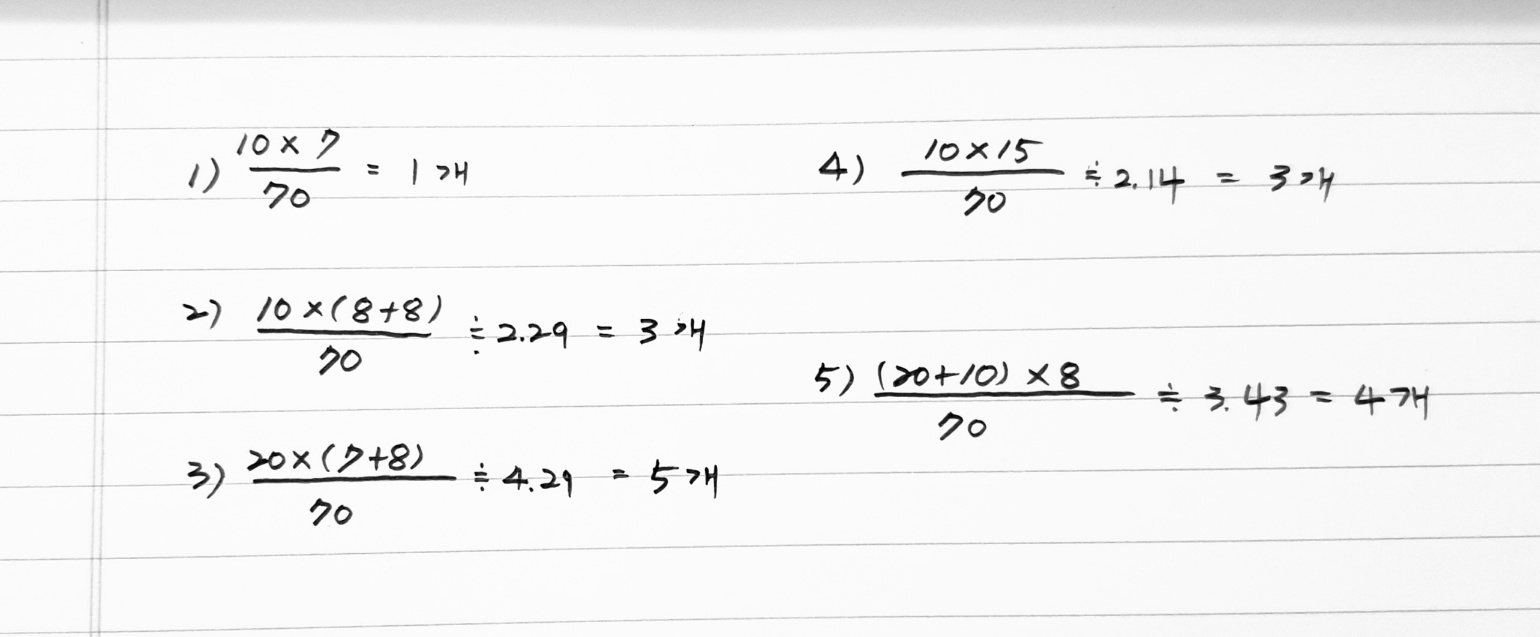 1) (10 × 7) / 70 = 1개
2) (10 × (8+8)) / 70 ≒ 2.29 = 3개
3) (20 × (7+8)) / 70 ≒ 4.29 = 5개
4) (10 × 15) / 70 ≒ 2.14 = 3개
5) ((20+10) × 8) / 70 ≒ 3.43 = 4개